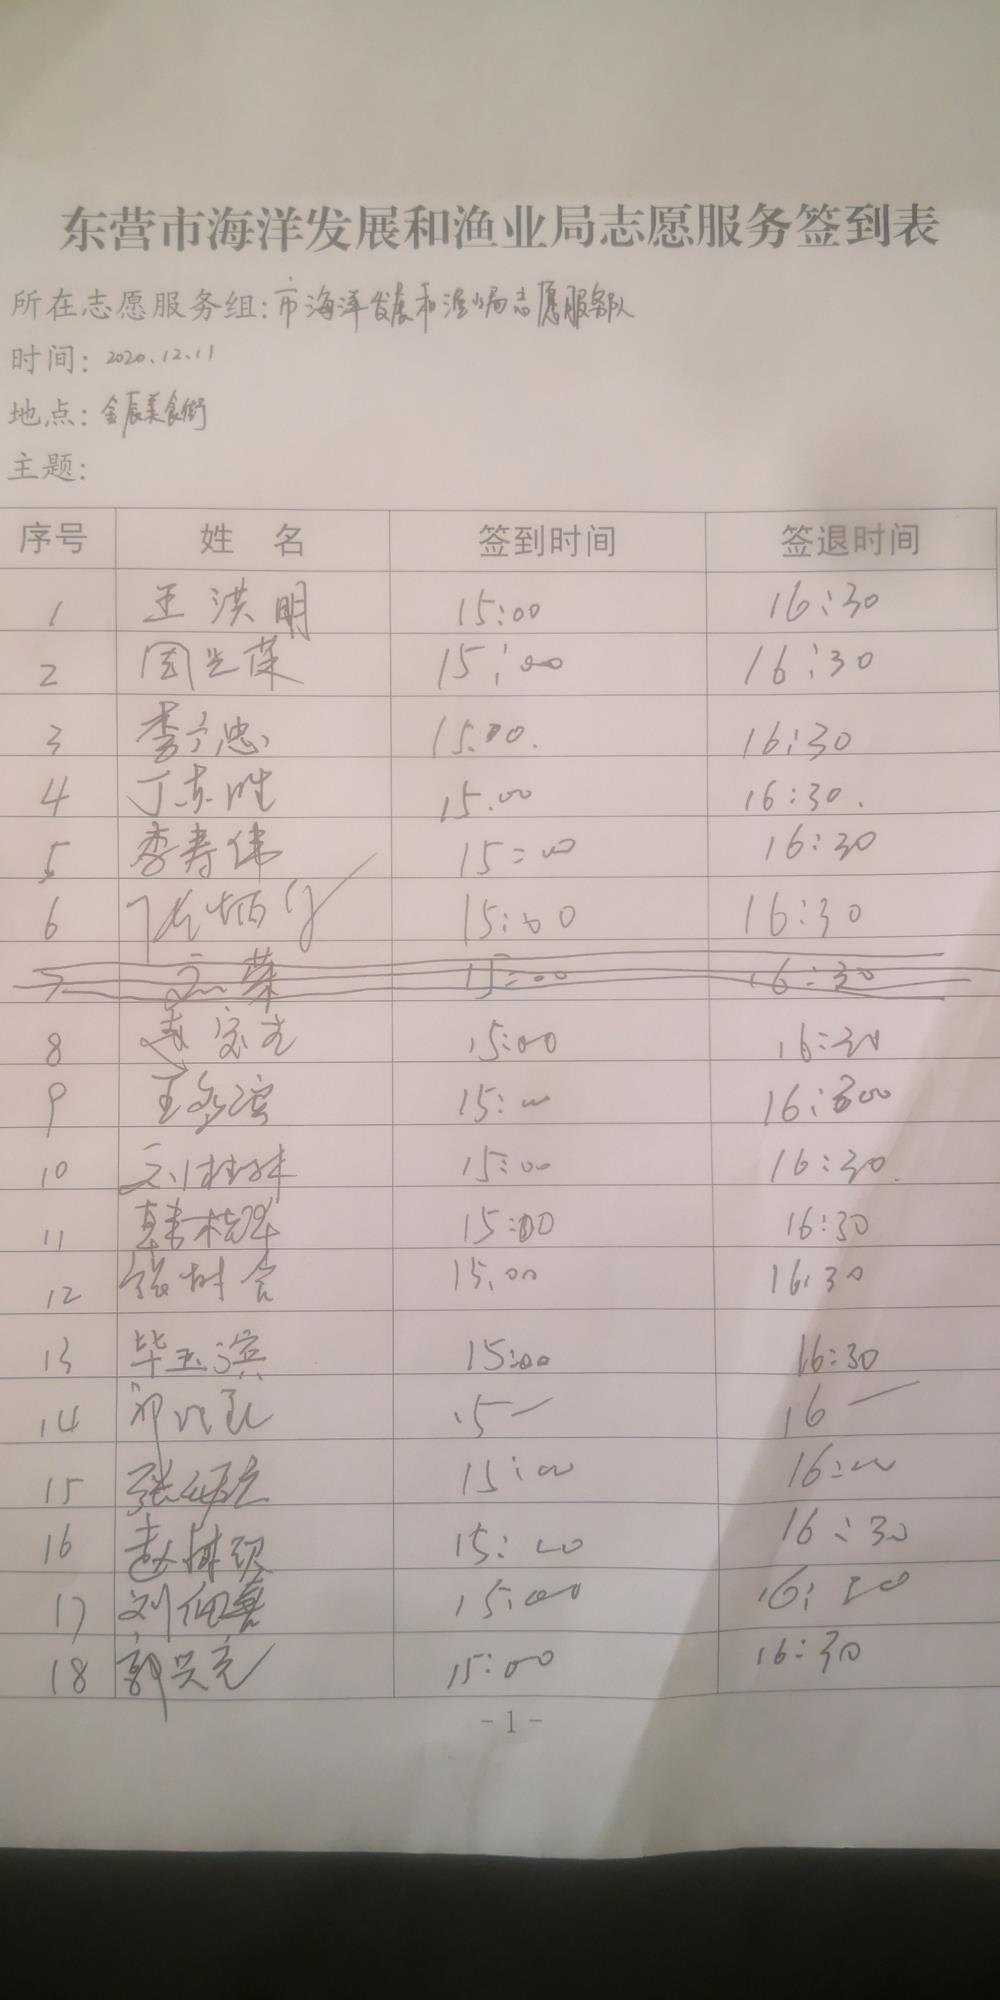 东营市海洋发展和渔业局志愿服务签到表
所在志愿服务组:市海洋发展和渔业局志愿服务队
时间: 2020.12.11
地点: 金辰美食街
主题:
序号 姓 名 签到时间 签退时间
1 王洪明 15:00 16:30
2 周光荣 15:00 16:30
3 李广忠 15:00. 16:30
4 丁东胜 15.00 16:30.
5 李寿伟 15:00 16:30
6 15:00 16:30
7 15:00 16:30
8 15:00 16:30
9 15:00 16:
10 刘桂林 15:00 16:30.
11 韩桂华 15:00 16:30
12 张树 15.00 16:30
13 毕玉滨 15:00 16:30
14 15 16
15 张 15:00 16:00
16 赵 15:00 16:30
17 刘佃喜 15:00 16:30
18 郭兴亮 15:00 16:30
-1-